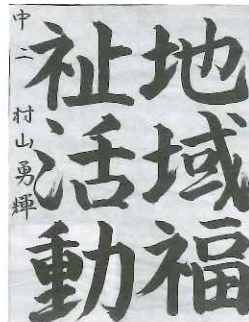 地域福
祉活動
中二 村山勇輝